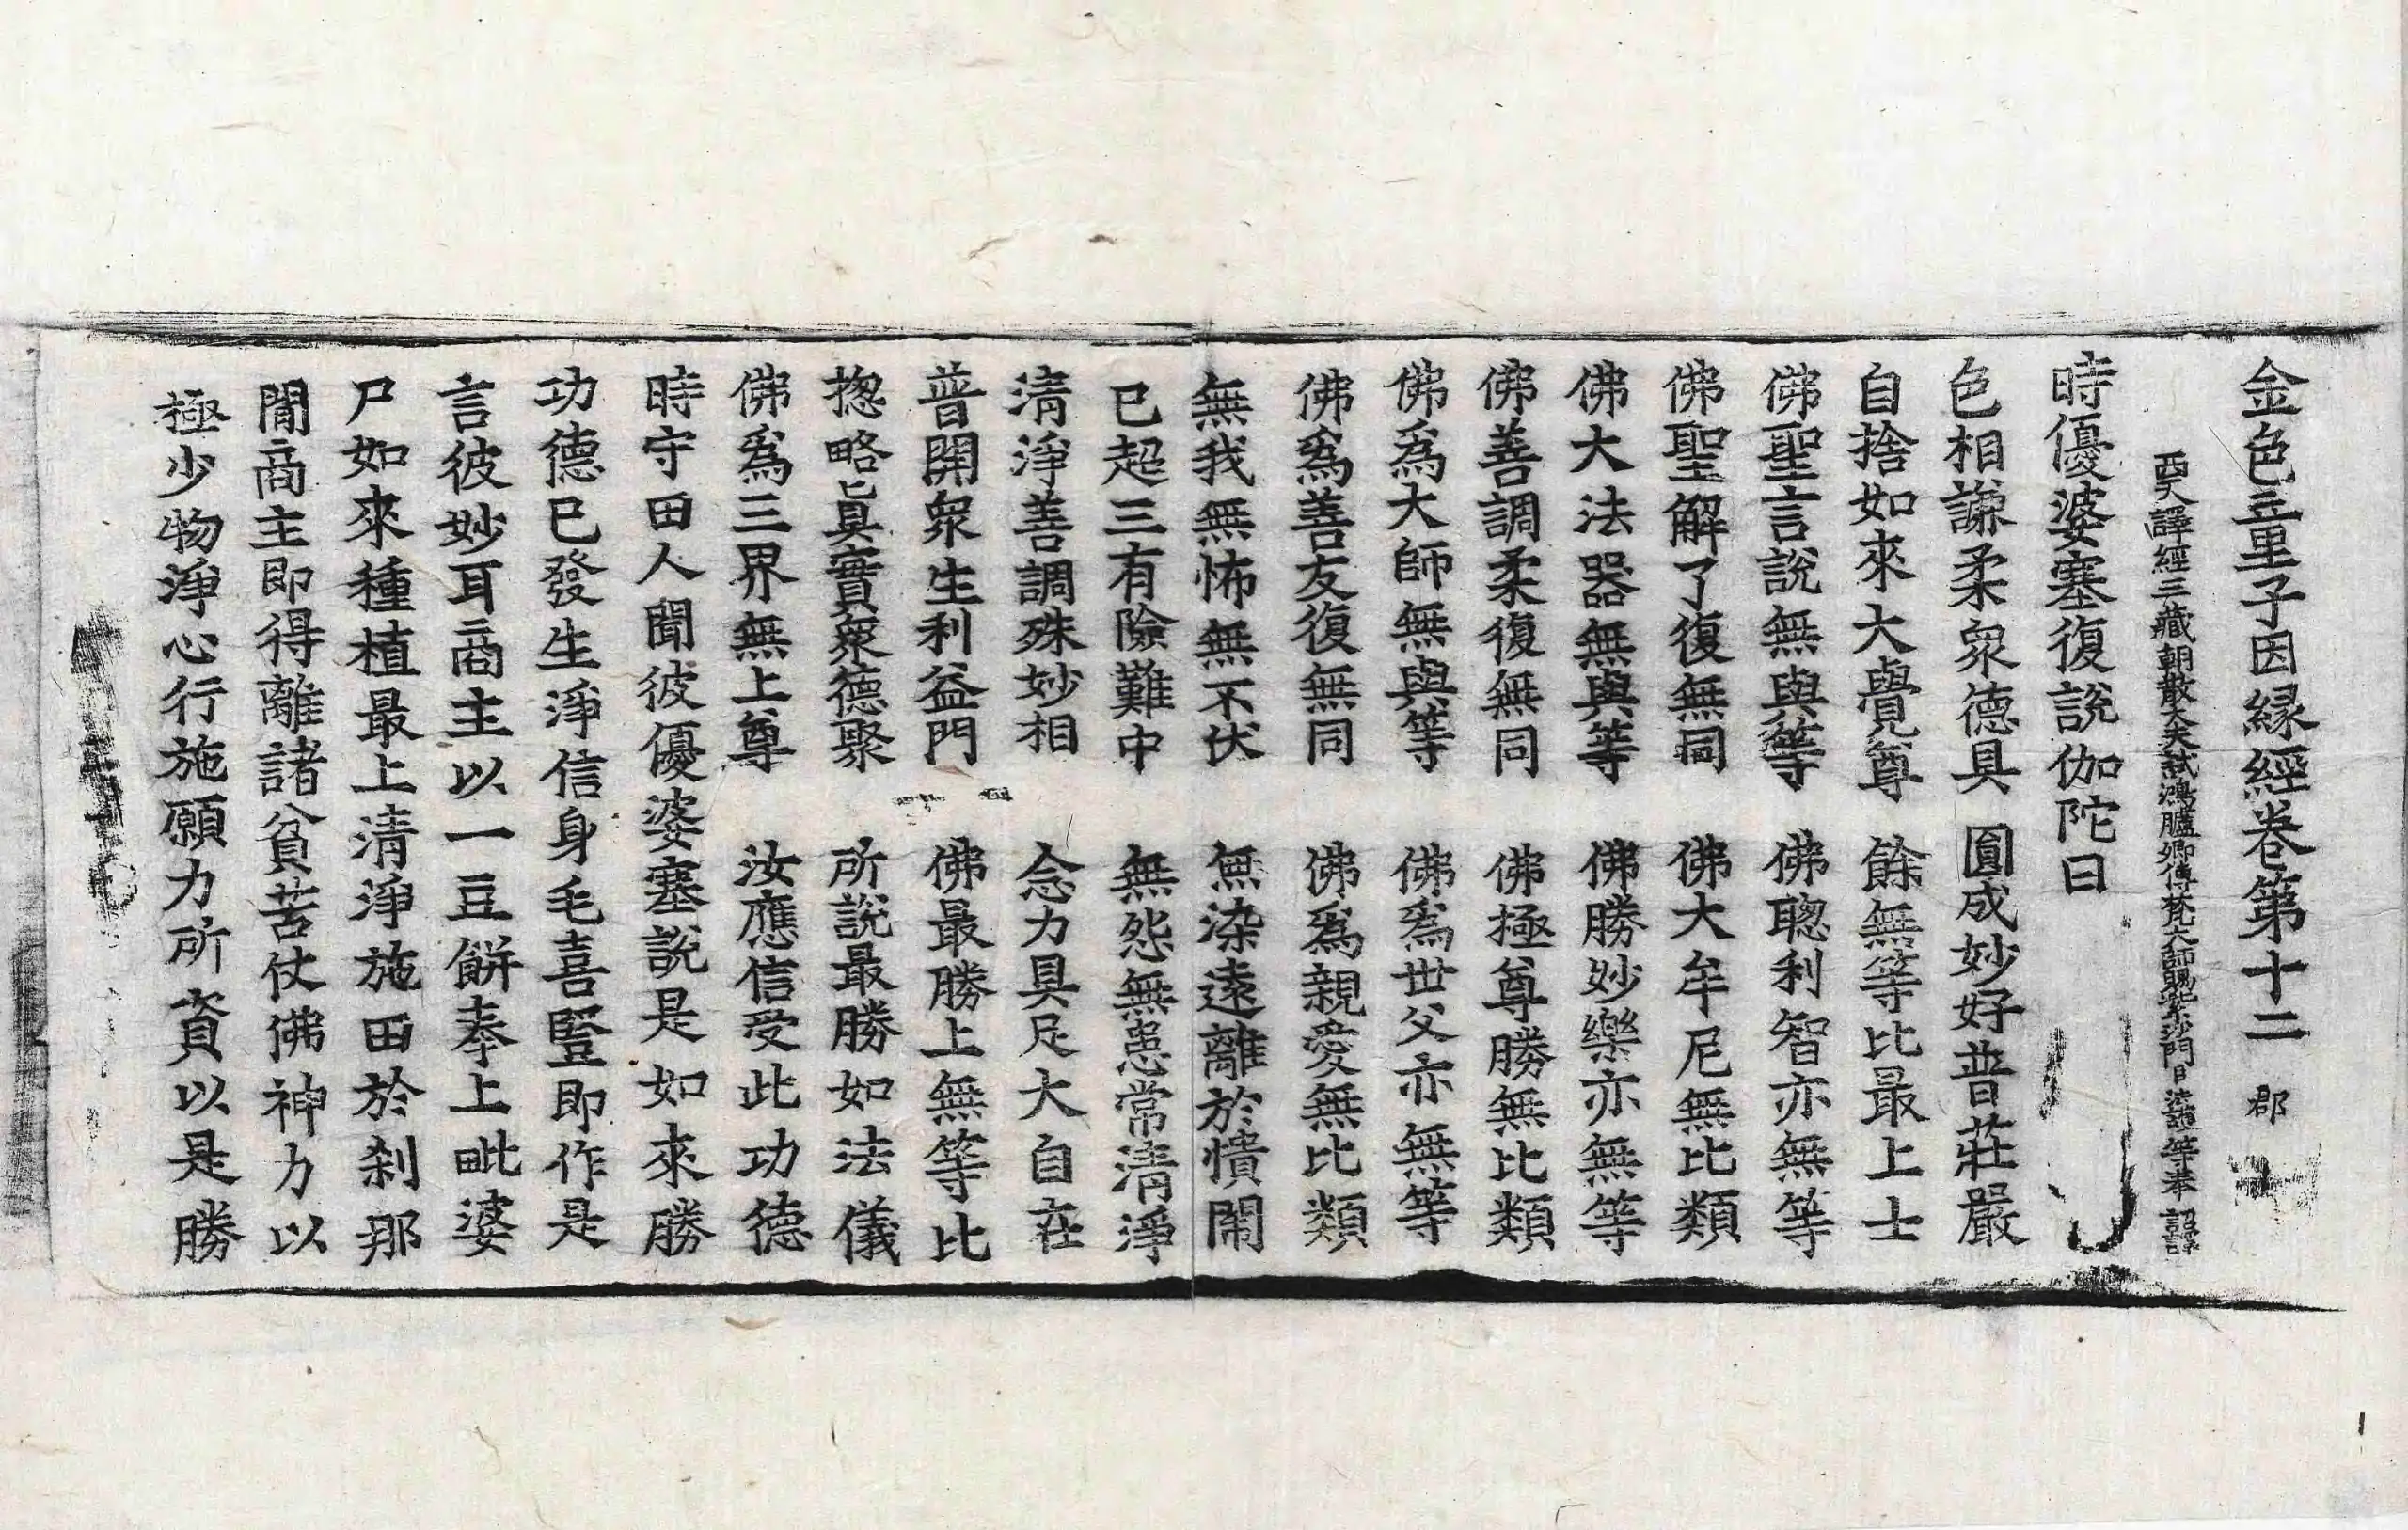 金色童子因縁經卷第十二　郡
西天譯經三藏朝散大夫試鴻臚卿傳梵大師賜紫沙門臣法護等奉　詔譯
時優婆塞復說伽陀曰
色相謙柔衆德具　圓成妙好普莊嚴
自捨如來大覺尊　餘無等比最上士
佛聖言說無與等　佛聰利智亦無等
佛聖解了復無同　佛大牟尼無比類
佛大法器無與等　佛勝妙樂亦無等
佛善調柔復無同　佛極尊勝無比類
佛爲大師無與等　佛爲世父亦無等
佛爲善友復無同　佛爲親愛無比類
無我無怖無不伏　無染遠離於憒鬧
已超三有險難中　無怨無恚常清淨
清淨善調殊妙相　念力具足大自在
普開衆生利益門　佛最勝上無等比
揔略眞實衆德聚　所說最勝如法儀
佛爲三界無上尊　汝應信受此功德
時守田人聞彼優婆塞說是如來勝
功德已發生淨信身毛喜竪即作是
言彼妙耳商主以一豆餅奉上毗婆
尸如來種植最上清淨施田於刹那
間商主即得離諸貧苦仗佛神力以
極少物淨心行施願力所資以是勝